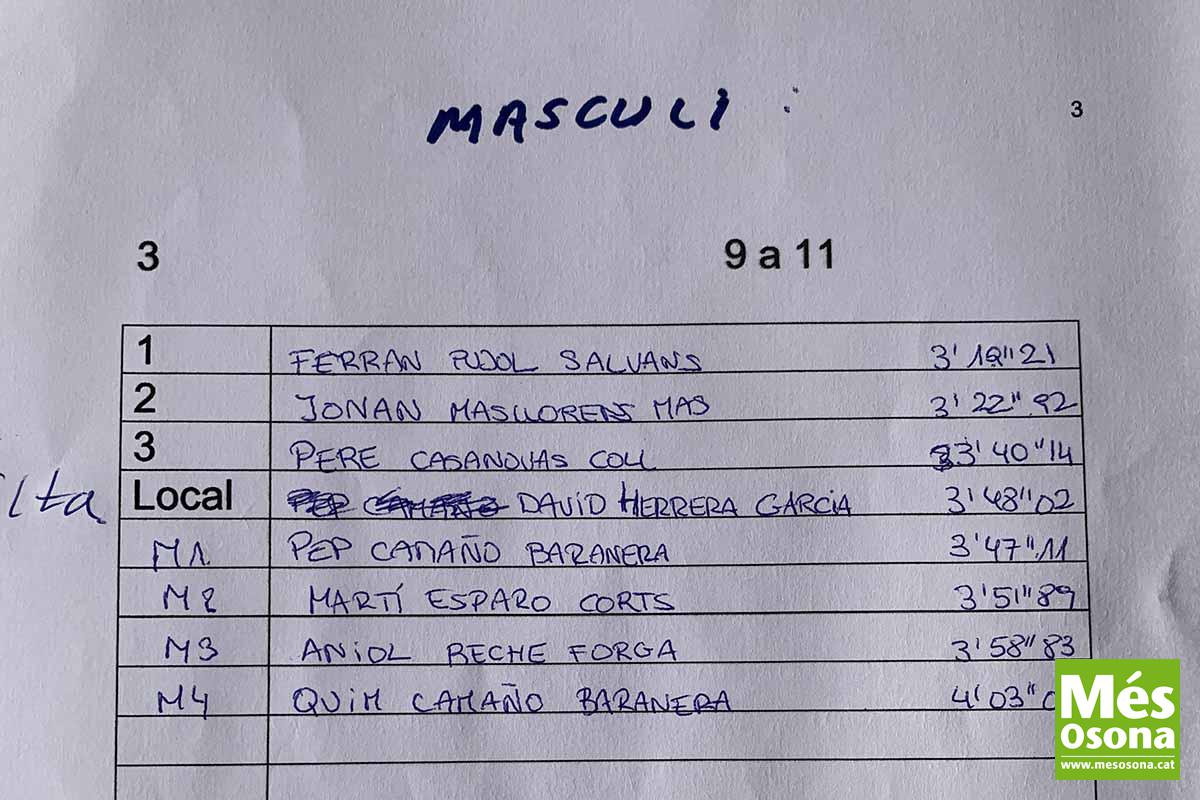 MASCULI :
3
3 9 a 11
1 FERRAN PUJOL SALVANS
2 JONAN MASLLORENS MAS 3' 22" 92
3 PERE CASANOVAS COLL 3' 40" 14
lta Local DAVID HERRERA GARCIA 3' 48" 02
M1 PEP CAMAÑO BARANERA 3' 47" 11
M2 MARTÍ ESPARO CORTS 3' 51" 89
M3 ANIOL RECHE FORGA 3' 58" 83
M4 QUIM CAMAÑO BARANERA 4' 03"
Més
Osona
www.mesosona.cat